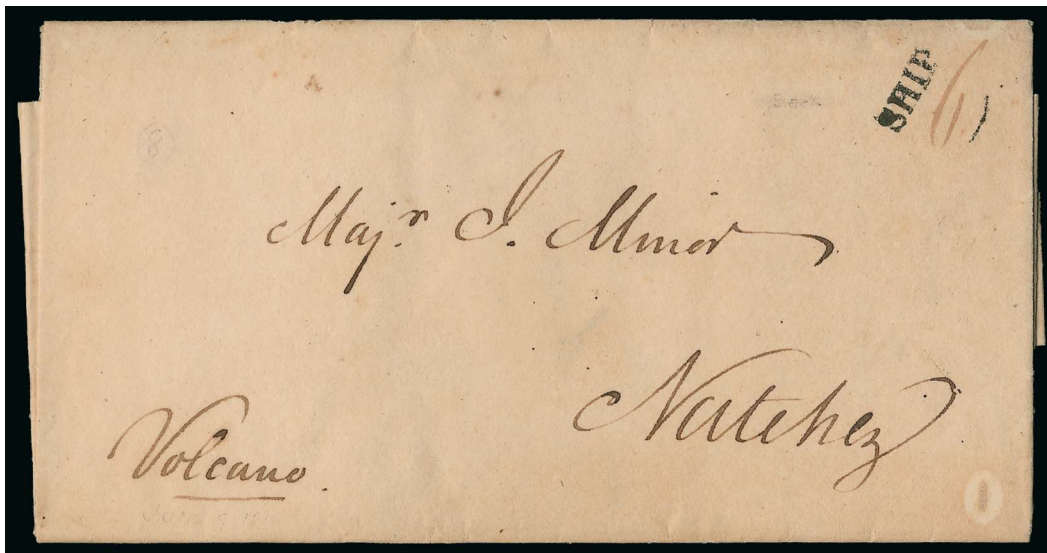 SHIP 6
Majr. J. Minor
Natchez
Volcano